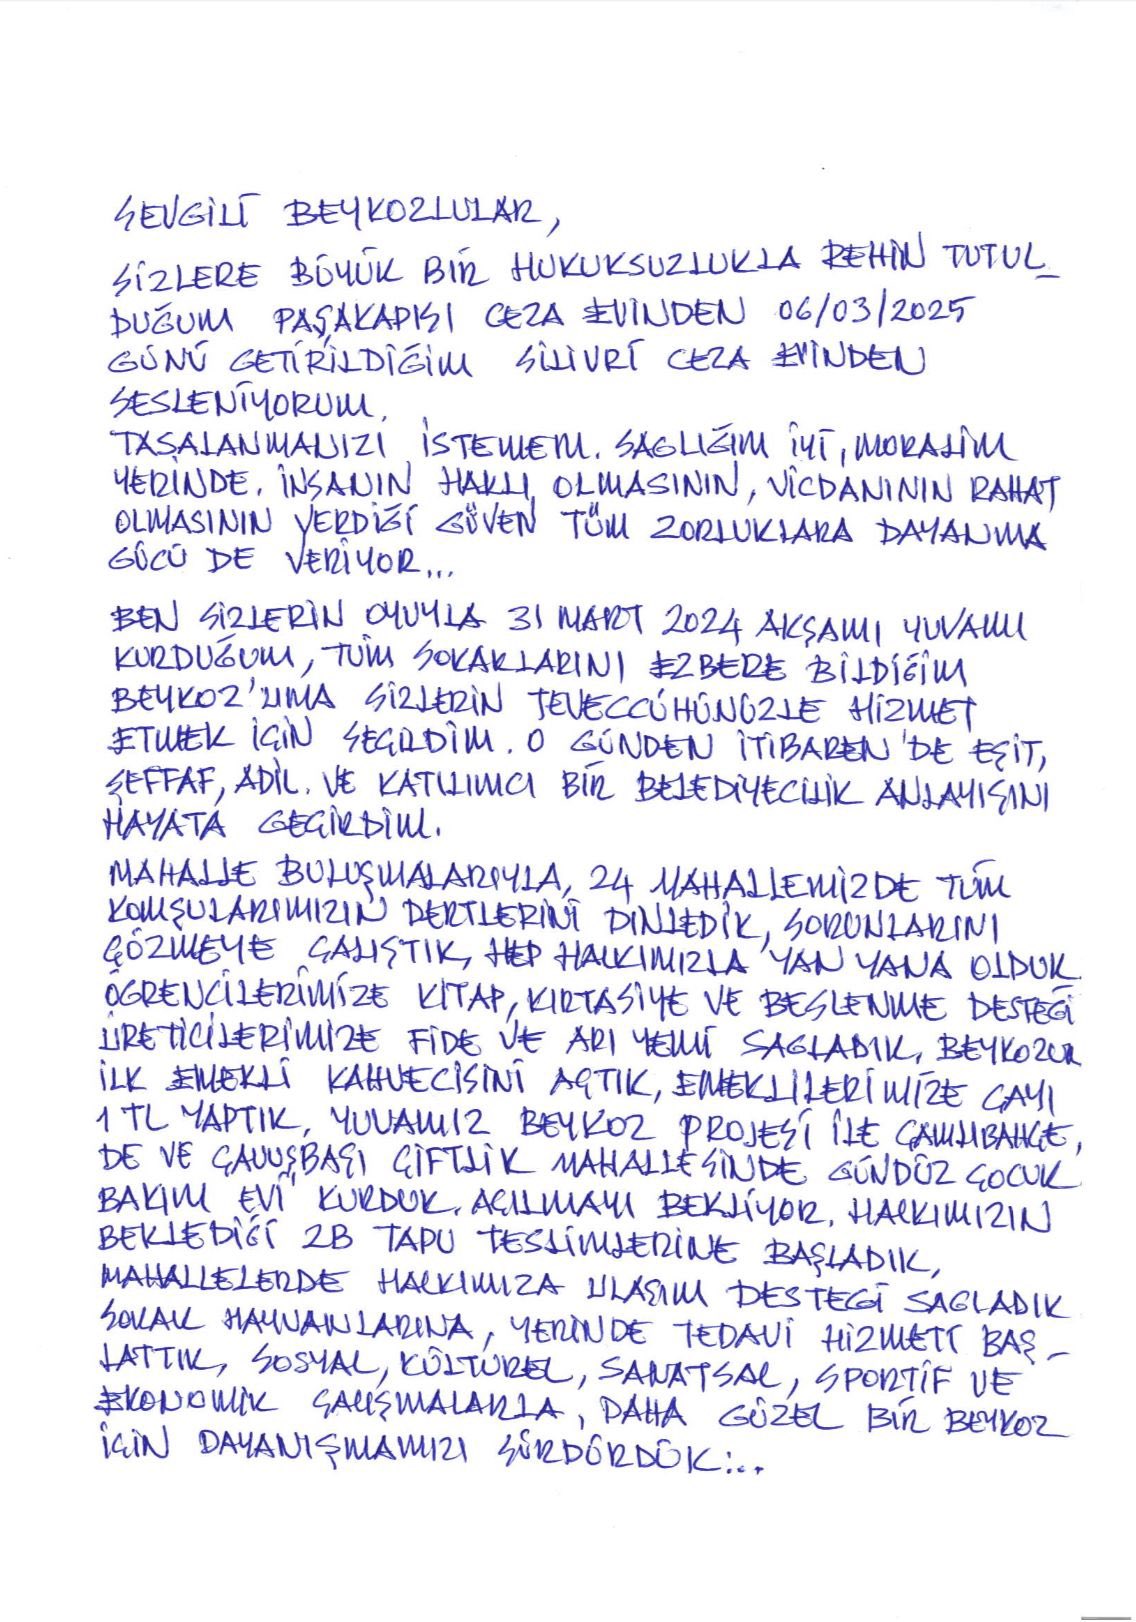 SEVGİLİ BEYKOZLULAR,
SİZLERE BÜYÜK BİR HUKUKSUZLUKLA REHİN TUTUL_
DUĞUM PAŞAKAPISI CEZA EVİNDEN 06/03/2025
GÜNÜ GETİRİLDİĞİM SİLİVRİ CEZA EVİNDEN
SESLENİYORUM.
TASALANMANIZI İSTEMEM. SAĞLIĞIM İYİ, MORALİM
YERİNDE. İNSANIN HAKLI OLMASININ, VİCDANININ RAHAT
OLMASININ VERDİĞİ GÜVEN TÜM ZORLUKLARA DAYANMA
GÜCÜ DE VERİYOR...
BEN SİZLERİN OYUYLA 31 MART 2024 AKŞAMI YUVAMI
KURDUĞUM, TÜM SOKAKLARINI EZBERE BİLDİĞİM
BEYKOZ'UMA SİZLERİN TEVECCÜHÜNÜZLE HİZMET
ETMEK İÇİN SEÇİLDİM. O GÜNDEN İTİBAREN DE EŞİT,
ŞEFFAF, ADİL. VE KATILIMCI BİR BELEDİYECİLİK ANLAYIŞINI
HAYATA GEÇİRDİM.
MAHALLE BULUŞMALARIYLA, 24 MAHALLEMİZDE TÜM
KOMŞULARIMIZIN DERTLERİNİ DİNLEDİK, SORUNLARINI
ÇÖZMEYE ÇALIŞTIK, HEP HALKIMIZLA YAN YANA OLDUK.
ÖĞRENCİLERİMİZE KİTAP, KIRTASİYE VE BESLENME DESTEĞİ
ÜRETİCİLERİMİZE FİDE VE ARI YEMİ SAĞLADIK, BEYKOZUN
İLK EMEKLİ KAHVECİSİNİ AÇTIK, EMEKLİLERİMİZE ÇAYI
1 TL YAPTIK, YUVAMIZ BEYKOZ PROJESİ İLE ÇAMLIBAHÇE,
DE VE ÇAVUŞBAŞI ÇİFTLİK MAHALLESİNDE GÜNDÜZ ÇOCUK
BAKIM EVİ KURDUK. AÇILMAYI BEKLİYOR. HALKIMIZIN
BEKLEDİĞİ 2B TAPU TESLİMLERİNE BAŞLADIK,
MAHALLELERDE HALKIMIZA ULAŞIM DESTEĞİ SAĞLADIK
SOKAK HAYVANLARINA, YERİNDE TEDAVİ HİZMETİ BAŞ_
LATTIK, SOSYAL, KÜLTÜREL, SANATSAL, SPORTİF VE
EKONOMİK ÇALIŞMALARLA, DAHA GÜZEL BİR BEYKOZ
İÇİN DAYANIŞMAMIZI SÜRDÜRDÜK...